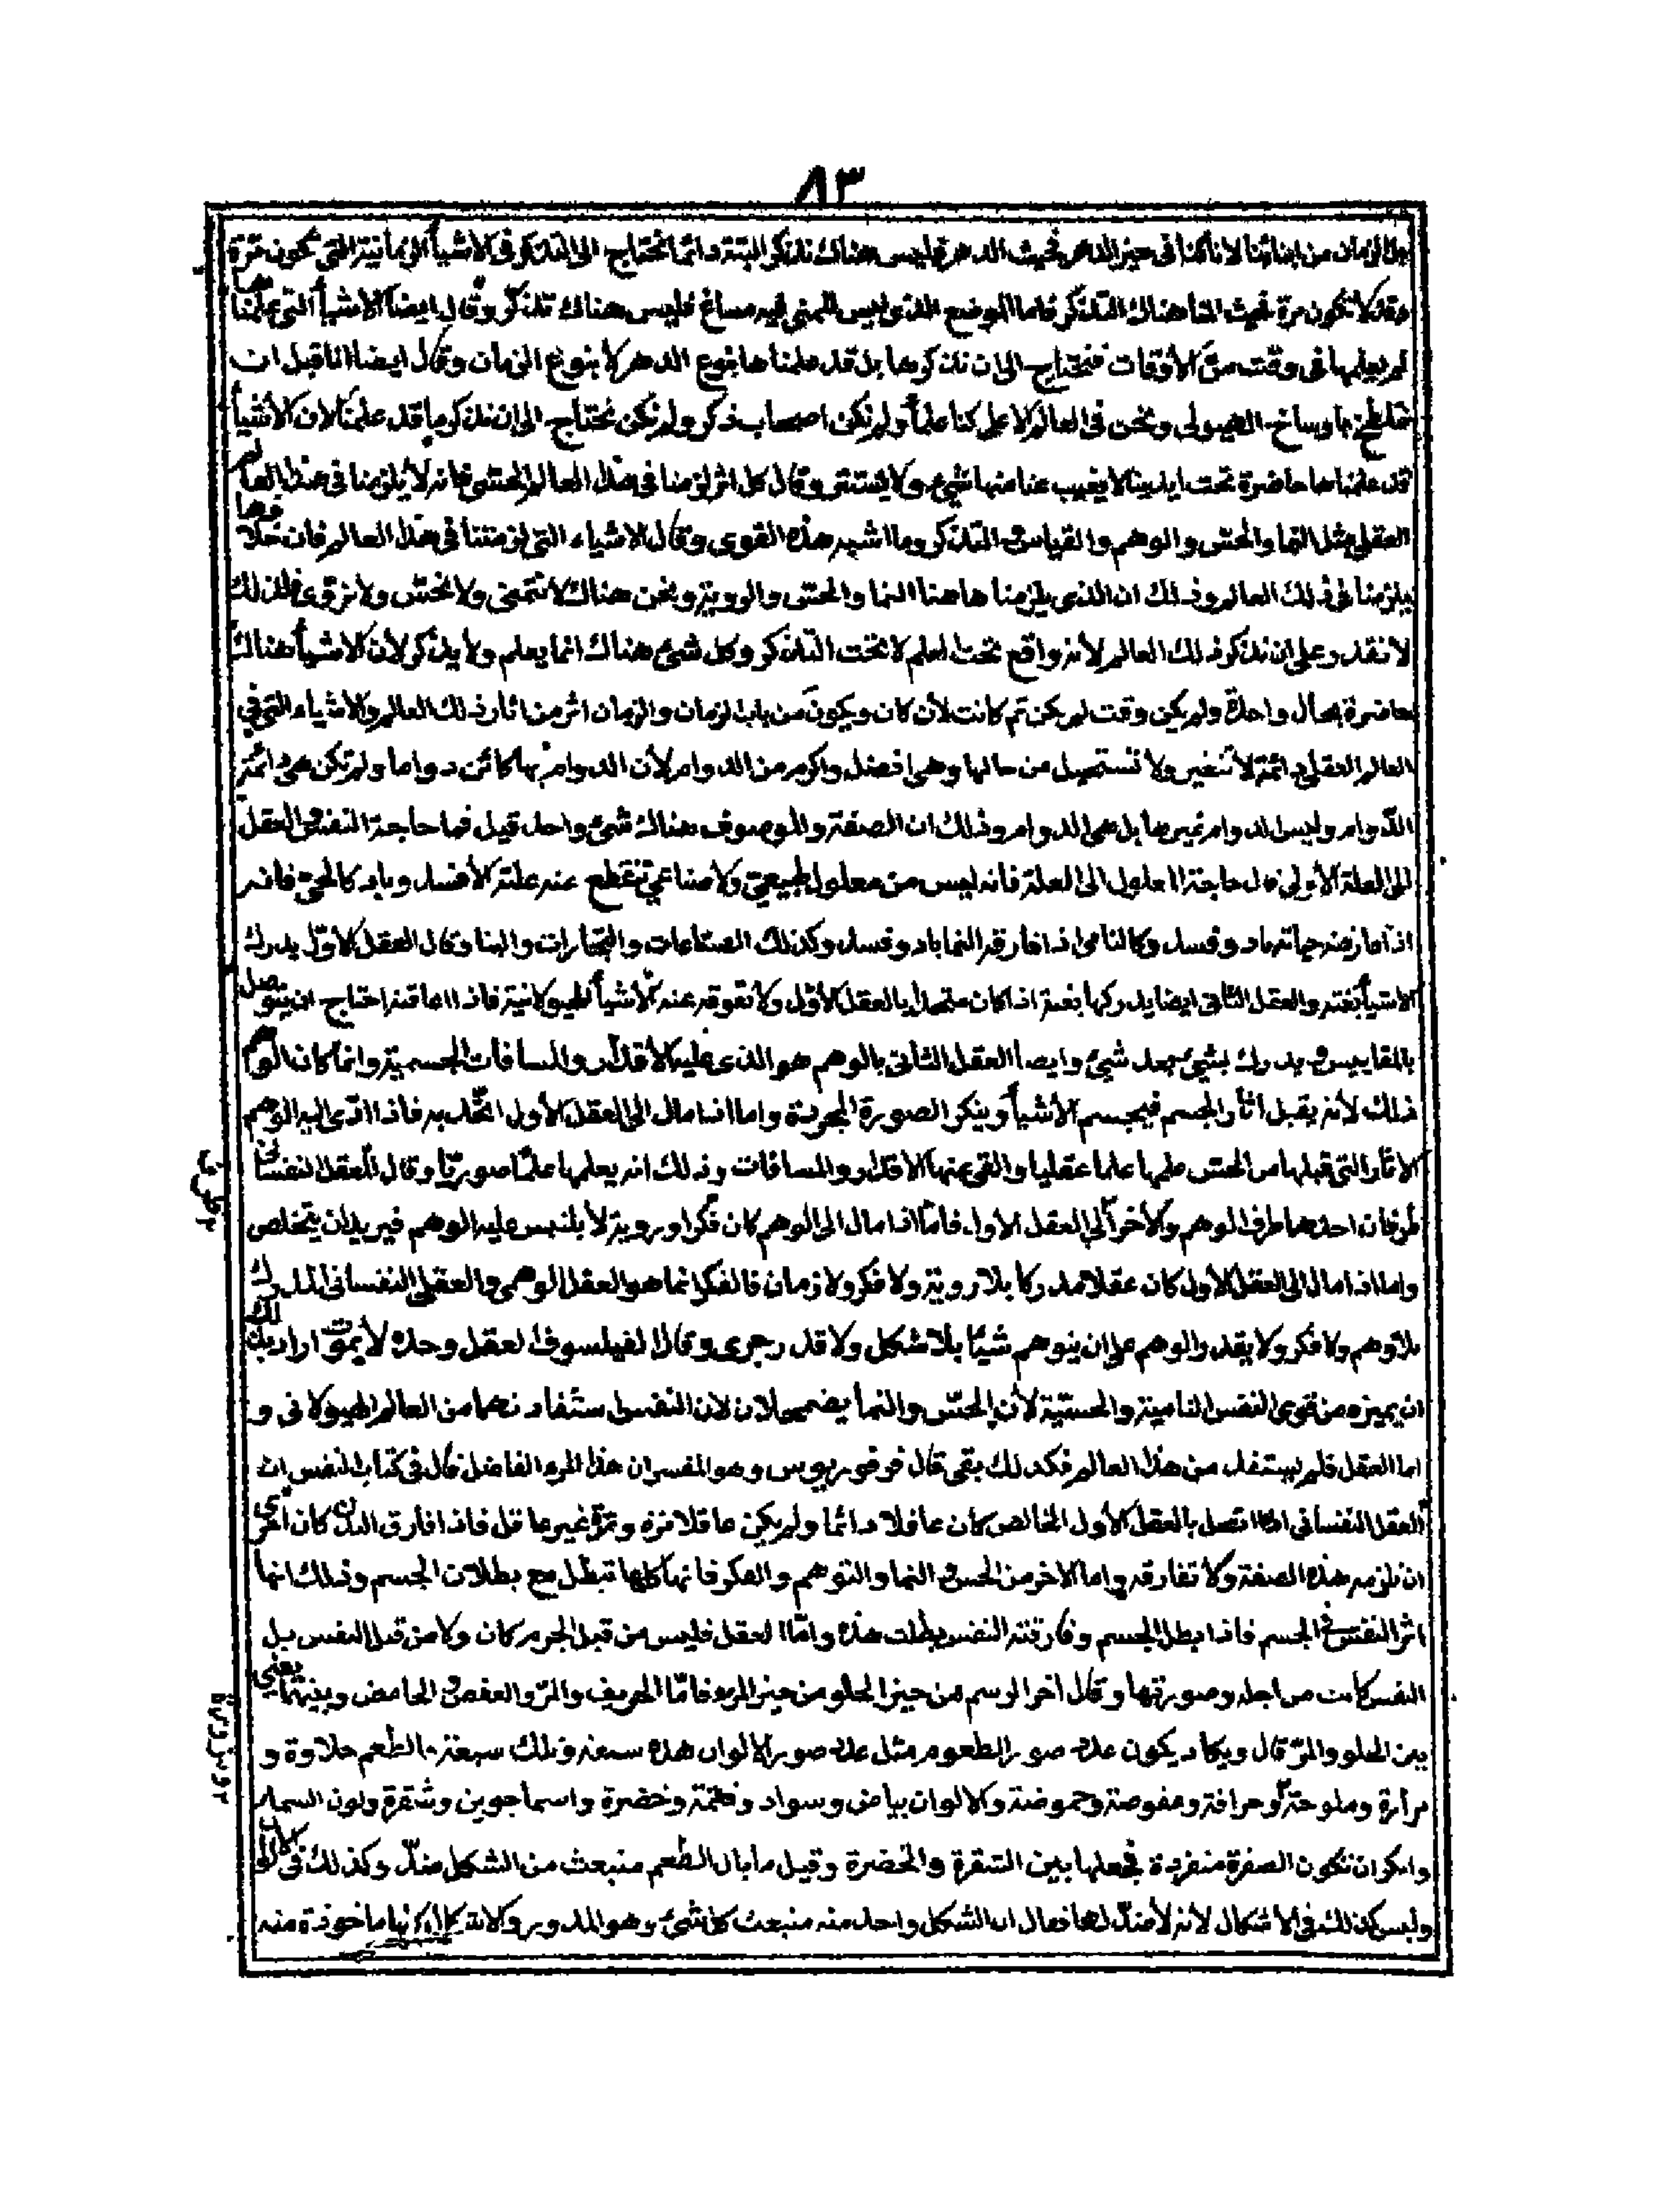 ٨٣
الزمان من ابنائنا لانا كنا فى حيز الدهر فحيث الدهر فليس هناك تذكر البتة دائما نحتاج الى التذكر فى الاشيأ الزمانية التى تكون مرة
وقد لا تكون مرة فحيث هناك التذكر فاما الموضع الذى ليس للمنى فيه مساغ فليس هناك تذكر وقال ايضا الاشيأ التى علمناها
لم نعلمها فى وقت من الأوقات فنحتاج الى ان نذكرها بل قد علمناها بنوع الدهر لا بنوع الزمان وقال ايضا انا قبل ان
نتلطخ باوساخ الهيولى ونحن فى العالم الاعلى كنا علمأ ولم نكن اصحاب ذكر ولم نكن نحتاج الى ان نذكر ما قد علمنا لان الاشيأ
قد علمناها حاضرة تحت ايدينا لا يغيب عنا منها شئ ولا يستتر وقال كل اثر لزمنا فى هذا العالم الحسى فانه لا يلزمنا فى هذا العالم
العقلى مثل النما والحس والوهم والقياس والتذكر وما اشبه هذه القوى وقال الاشياء التى لزمتنا فى هذا العالم فان خلافها
يلزمنا فى ذلك العالم وذلك ان الذى يلزمنا هاهنا النما والحس والروية ونحن هناك لا ننمى ولا نحس ولا نروى فلذلك
لا نقدر على ان نذكر ذلك العالم لأنه واقع تحت العلم لا تحت التذكر وكل شئ هناك انما يعلم ولا يذكر لأن الاشيأ هناك
حاضرة بحال واحدة ولم يكن وقت لم يكن ثم كانت لأن كان ويكون من باب الزمان والزمان اثر من اثار ذلك العالم والاشياء التى فى
العالم العقلى دائمة لا تتغير ولا تستحيل من حالها وهى افضل واكرم من الدوام لأن الدوام بها كائن دواما ولم تكن هى دائمة
الدوام وليس الدوام غيرها بل هى الدوام وذلك ان الصفة والموصوف هناك شئ واحد قيل فما حاجة النفس والعقل
الى العلة الأولى قال حاجة المعلول الى العلة فانه ليس من معلول طبيعى ولا صناعى تنقطع عنه علته الا فسد وباد كالحى فانه
اذا فارقته حياته باد وفسد وكالنامى اذا فارقه النما باد وفسد وكذلك الصناعات والتجارات والبنا وقال العقل الاول يدرك
الاشيأ بغتة والعقل الثانى ايضا يدركها بغتة اذا كان متصلا بالعقل الأول ولا تعوقه عنه الأشيأ الهيولانية فاذا اعاقته احتاج ان يتوصل
بالمقاييس ويدرك بشئ بعد شئ وايضا العقل الثانى بالوهم هو الذى عليه الأقدار والمسافات الجسمية وانما كان الوهم
ذلك لأنه يقبل اثار الجسم فيجسم الأشيأ وينكر الصورة المجردة واما اذا مال الى العقل الأول اتحد به فاذا ادى اليه الوهم
الاثار التى قبلها من الحس علمها علما عقليا والقى عنها الاقدار والمسافات وذلك انه يعلمها علما صوريا وقال للعقل النفسانى
طرفان احدهما طرف الوهم والأخر الى العقل الاول فاما اذا مال الى الوهم كان فكرا وروية لا يلتبس عليه الوهم فيريد ان يتخلص
واما اذا مال الى العقل الأول كان عقلا مدركا بلا روية ولا فكر ولا زمان فالفكر انما هو العقل الوهمى والعقل النفسانى المدرك
بلا وهم ولا فكر ولا يقدر الوهم على ان يتوهم شيئا بلا شكل ولا قدر جرمى وقال الفيلسوف العقل وحده لا يموت اراد بذلك
ان يميزه من قوى النفس النامية والحسية لأن الحس والنما يضمحلان لان النفس استفادتهما من العالم الهيولانى و
اما العقل فلم يستفد من هذا العالم فكذلك بقى قال فرفوريوس وهو المفسر ان هذا المرء الفاضل قال فى كتاب النفس ان
العقل النفسانى اذا اتصل بالعقل الأول الخالص كان عاقلا دائما ولم يكن عاقلا مرة ومرة غير عاقل فاذا فارق البدن كان احرى
ان تلزمه هذه الصفة ولا تفارقه واما الاخر من الحس والنما والتوهم والفكر فانها كلها تبطل مع بطلان الجسم وذلك انها
اثر النفس فى الجسم فاذا بطل الجسم وفارقته النفس بطلت هذه واما العقل فليس من قبل الجرم كان ولا من قبل النفس بل
النفس كانت من اجله وصورتها وقال اخر الوسم من حيز الحلو من حيز المر فاما الحريف والمر والعفص والحامض وبينهما يعنى
بين الحلو والمر قال ويكاد يكون عدد صور الطعوم مثل عدد صور الالوان هذه سبعة وتلك سبعة الطعم حلاوة و
مرارة وملوحة وحرافة وعفوصة وحموضة والالوان بياض وسواد وقتمة وخضرة واسماجوين وشقرة ولون السماء
وامكن ان تكون الصفرة منفردة فجعلها بين الشقرة والخضرة وقيل ما بال الطعم منبعث من الشكل ضد وكذلك فى الألوان
وليس كذلك فى الاشكال لانه لا ضد لها فقال ان الشكل واحد منه منبعث كل شئ وهو المدور والاشكال كلها ماخوذة منه